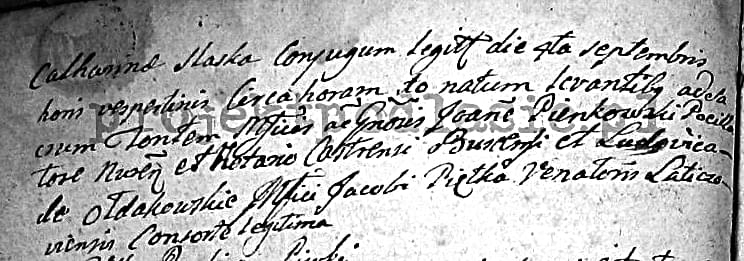 Catharinæ Slaska Conjugum Legitt. die 4ta Septembris
horis vespertinis Circa horam 10 natum levantibq ad Sa
crum Fontem Mfficis ac Gnosis Joañe Pienkowski Pocilla
tore Nureñ et Notario Castrensi Buscensi et Ludovica
de Ołdakowskie Mffici Jacobi Piętka Venatoris Laticzo
viensis Consorte legitima